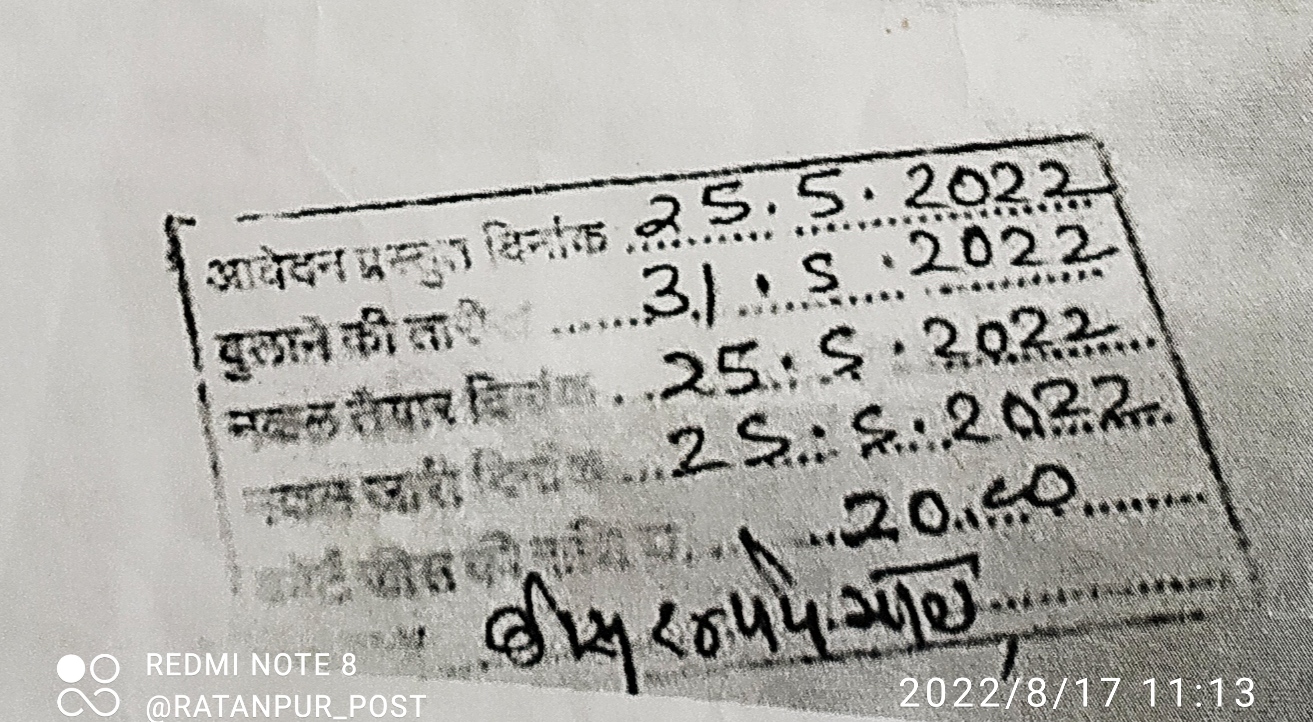 आवेदन प्रस्तुत दिनांक ............ 25.5.2022
बुलाने की तारी ............ 31.5.2022
नकल तैयार दिनांक ............ 25.5.2022
नकल जारी दिनांक ............ 25.5.2022
कोर्ट फीस की राशि रू. ............ 20.00
बीस रूपये मात्र
REDMI NOTE 8
@RATANPUR_POST
2022/8/17 11:13